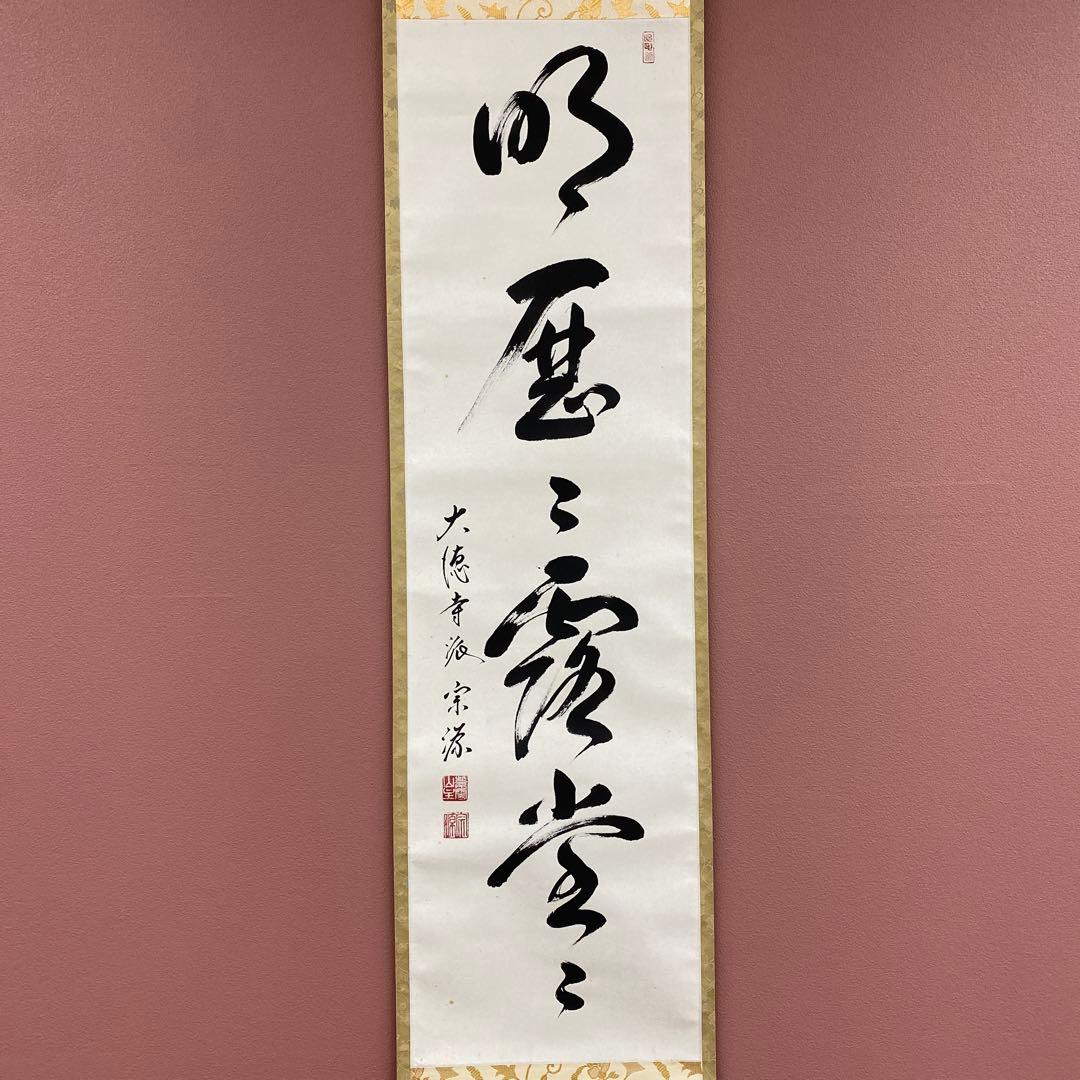 明歴々露堂々
大徳寺派 宗源